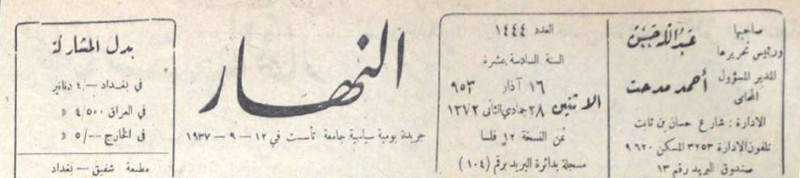 صاحبها
ورئيس تحريرها
عبدالله حسن
المدير المسؤول
أحمد مدحت
المحامي
الادارة : شارع حسان بن ثابت
تلفون الادارة ٣٢٥٣ المسكن ٩٦٢٠
صندوق البريد رقم ١٣
العدد ١٤٤٤
السنة السادسة عشرة
الاثنين
١٦ آذار ٩٥٣
٢٨ جمادي الثاني ١٣٧٢
ثمن النسخة ١٢ فلسا
مسجلة بدائرة البريد برقم (١٠٤)
النهار
جريدة يومية سياسية جامعة تأسست في ١٢ - ٩ - ١٩٣٧
بدل المشاركة
في بغداد -/٤ دنانير
في العراق ٤/٥٠٠ »
في الخارج -/٥ »
مطبعة شفيق - بغداد